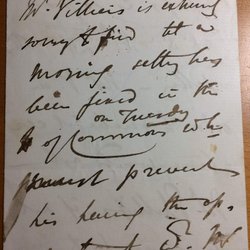 Mr. Villiers is extremely
sorry to find that a
morning sitting has
been fixed in the
on Tuesday
H of Commons wh
prevents
his having the op